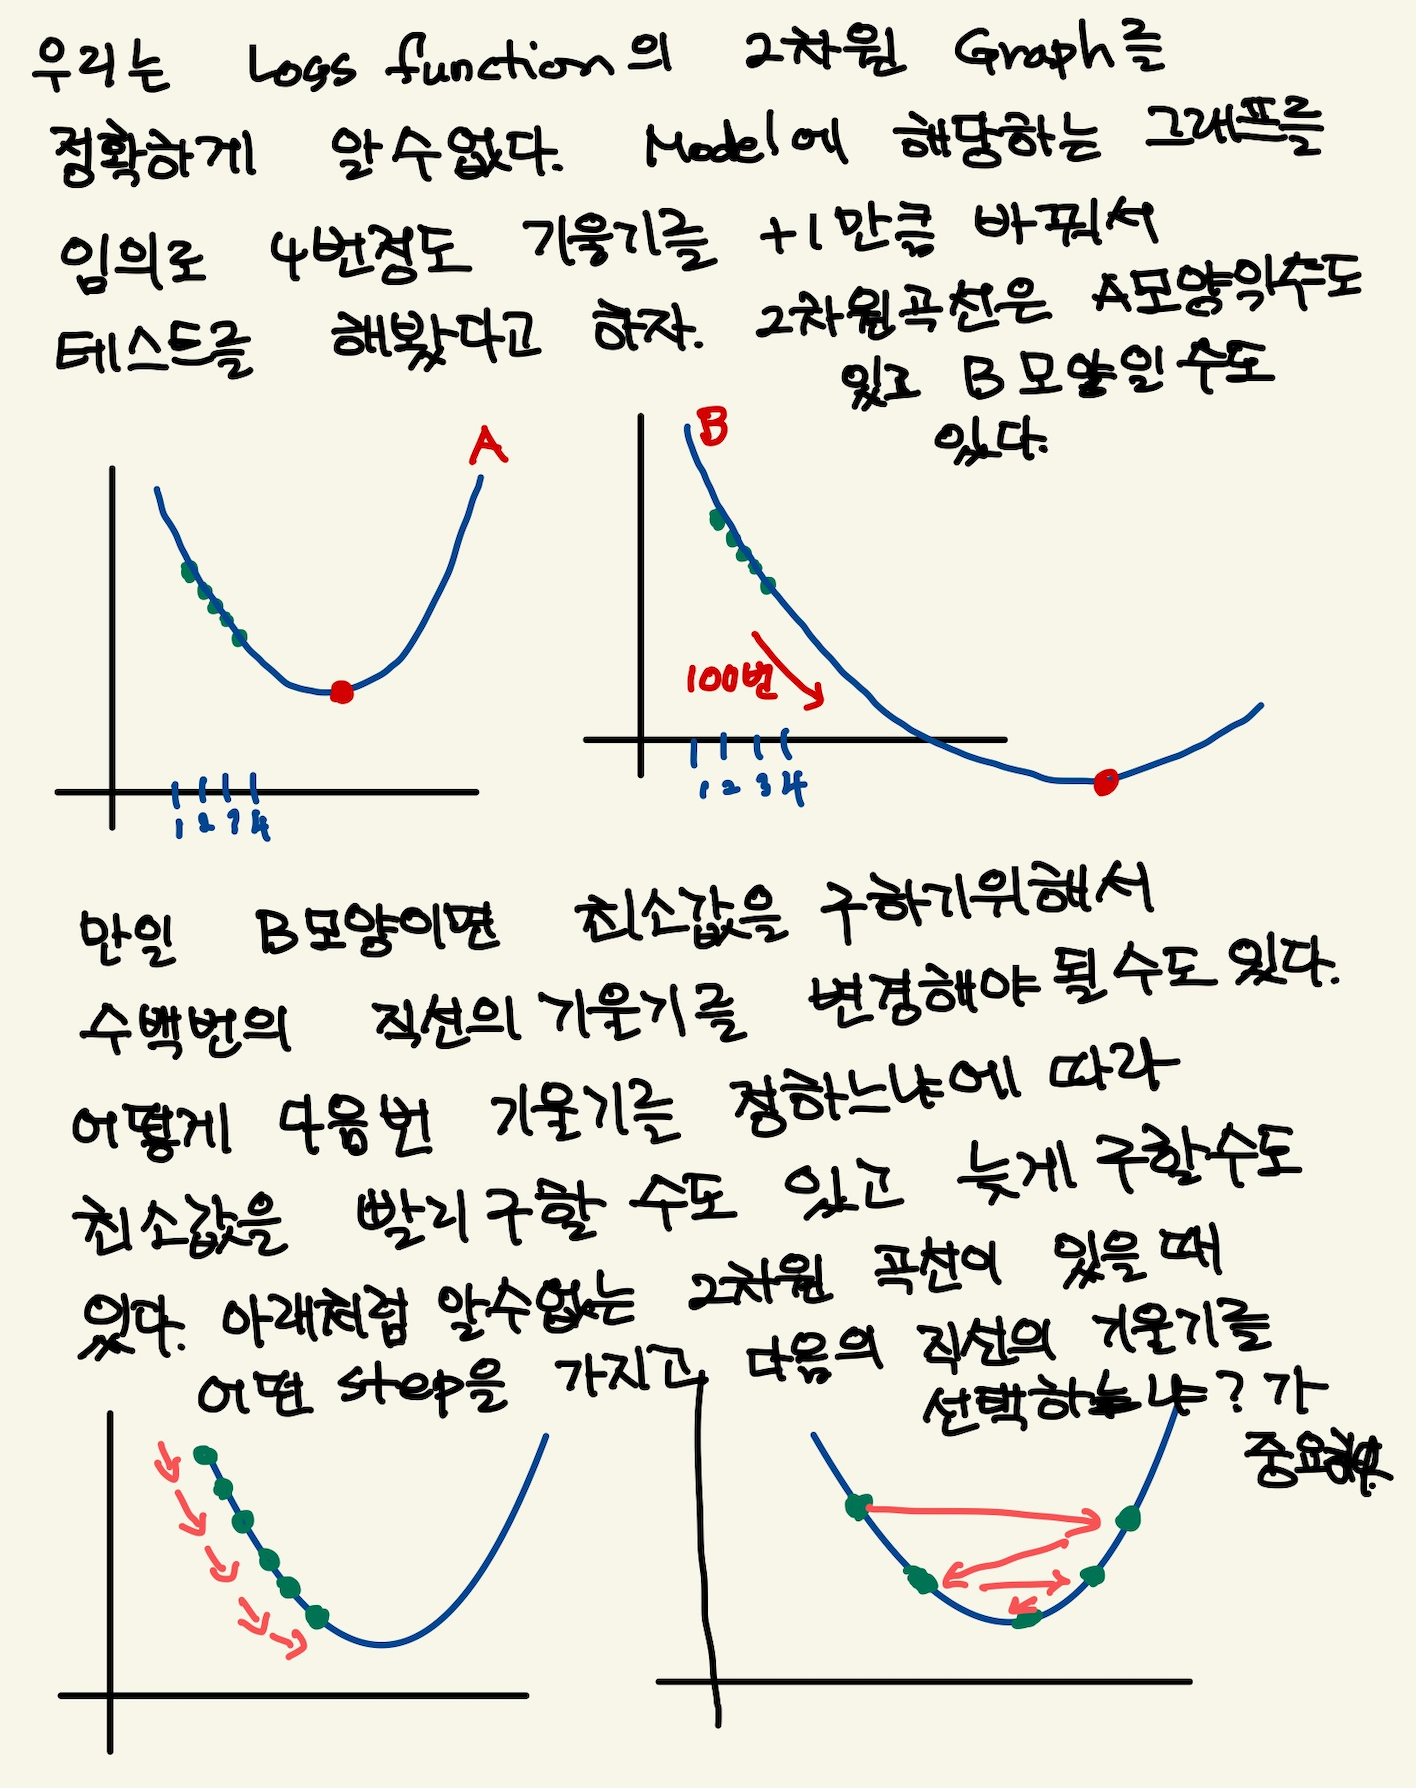 우리는 Logs function의 2차원 Graph를
정확하게 알수없다. Model에 해당하는 그래프를
임의로 4번정도 기울기를 +1만큼 바꿔서
테스트를 해봤다고 하자. 2차원곡선은 A모양일수도
있고 B모양일 수도
있다.
A
B
100번
1 2 3 4
1 2 3 4
만일 B모양이면 최소값을 구하기위해서
수백번의 직선의 기울기를 변경해야 될수도 있다.
어떻게 다음번 기울기를 정하느냐에 따라
최소값을 빨리구할 수도 있고 늦게 구할수도
있다. 아래처럼 알수없는 2차원 곡선이 있을 때
어떤 step을 가지고 다음의 직선의 기울기를
선택하느냐? 가